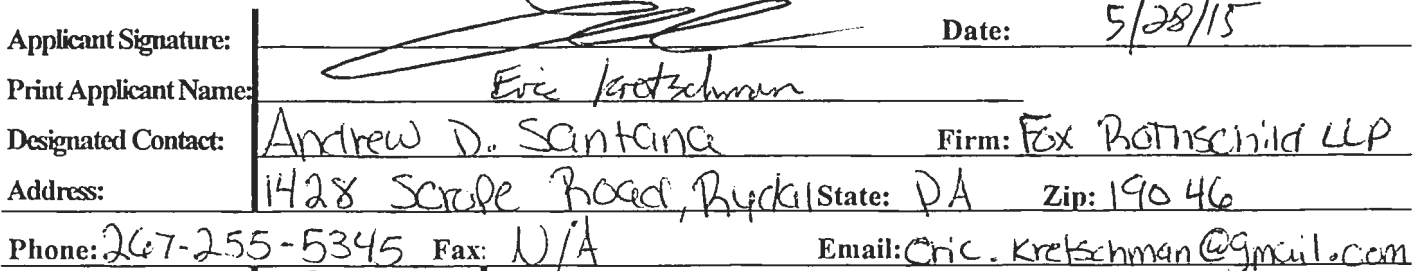 Applicant Signature: Date: 5/28/15
Print Applicant Name: Eric Kretschman
Designated Contact: Andrew D. Santana Firm: Fox Rothschild LLP
Address: 1428 Scrope Road, Rydal State: PA Zip: 19046
Phone: 267-255-5345 Fax: N/A Email: eric.kretschman@gmail.com